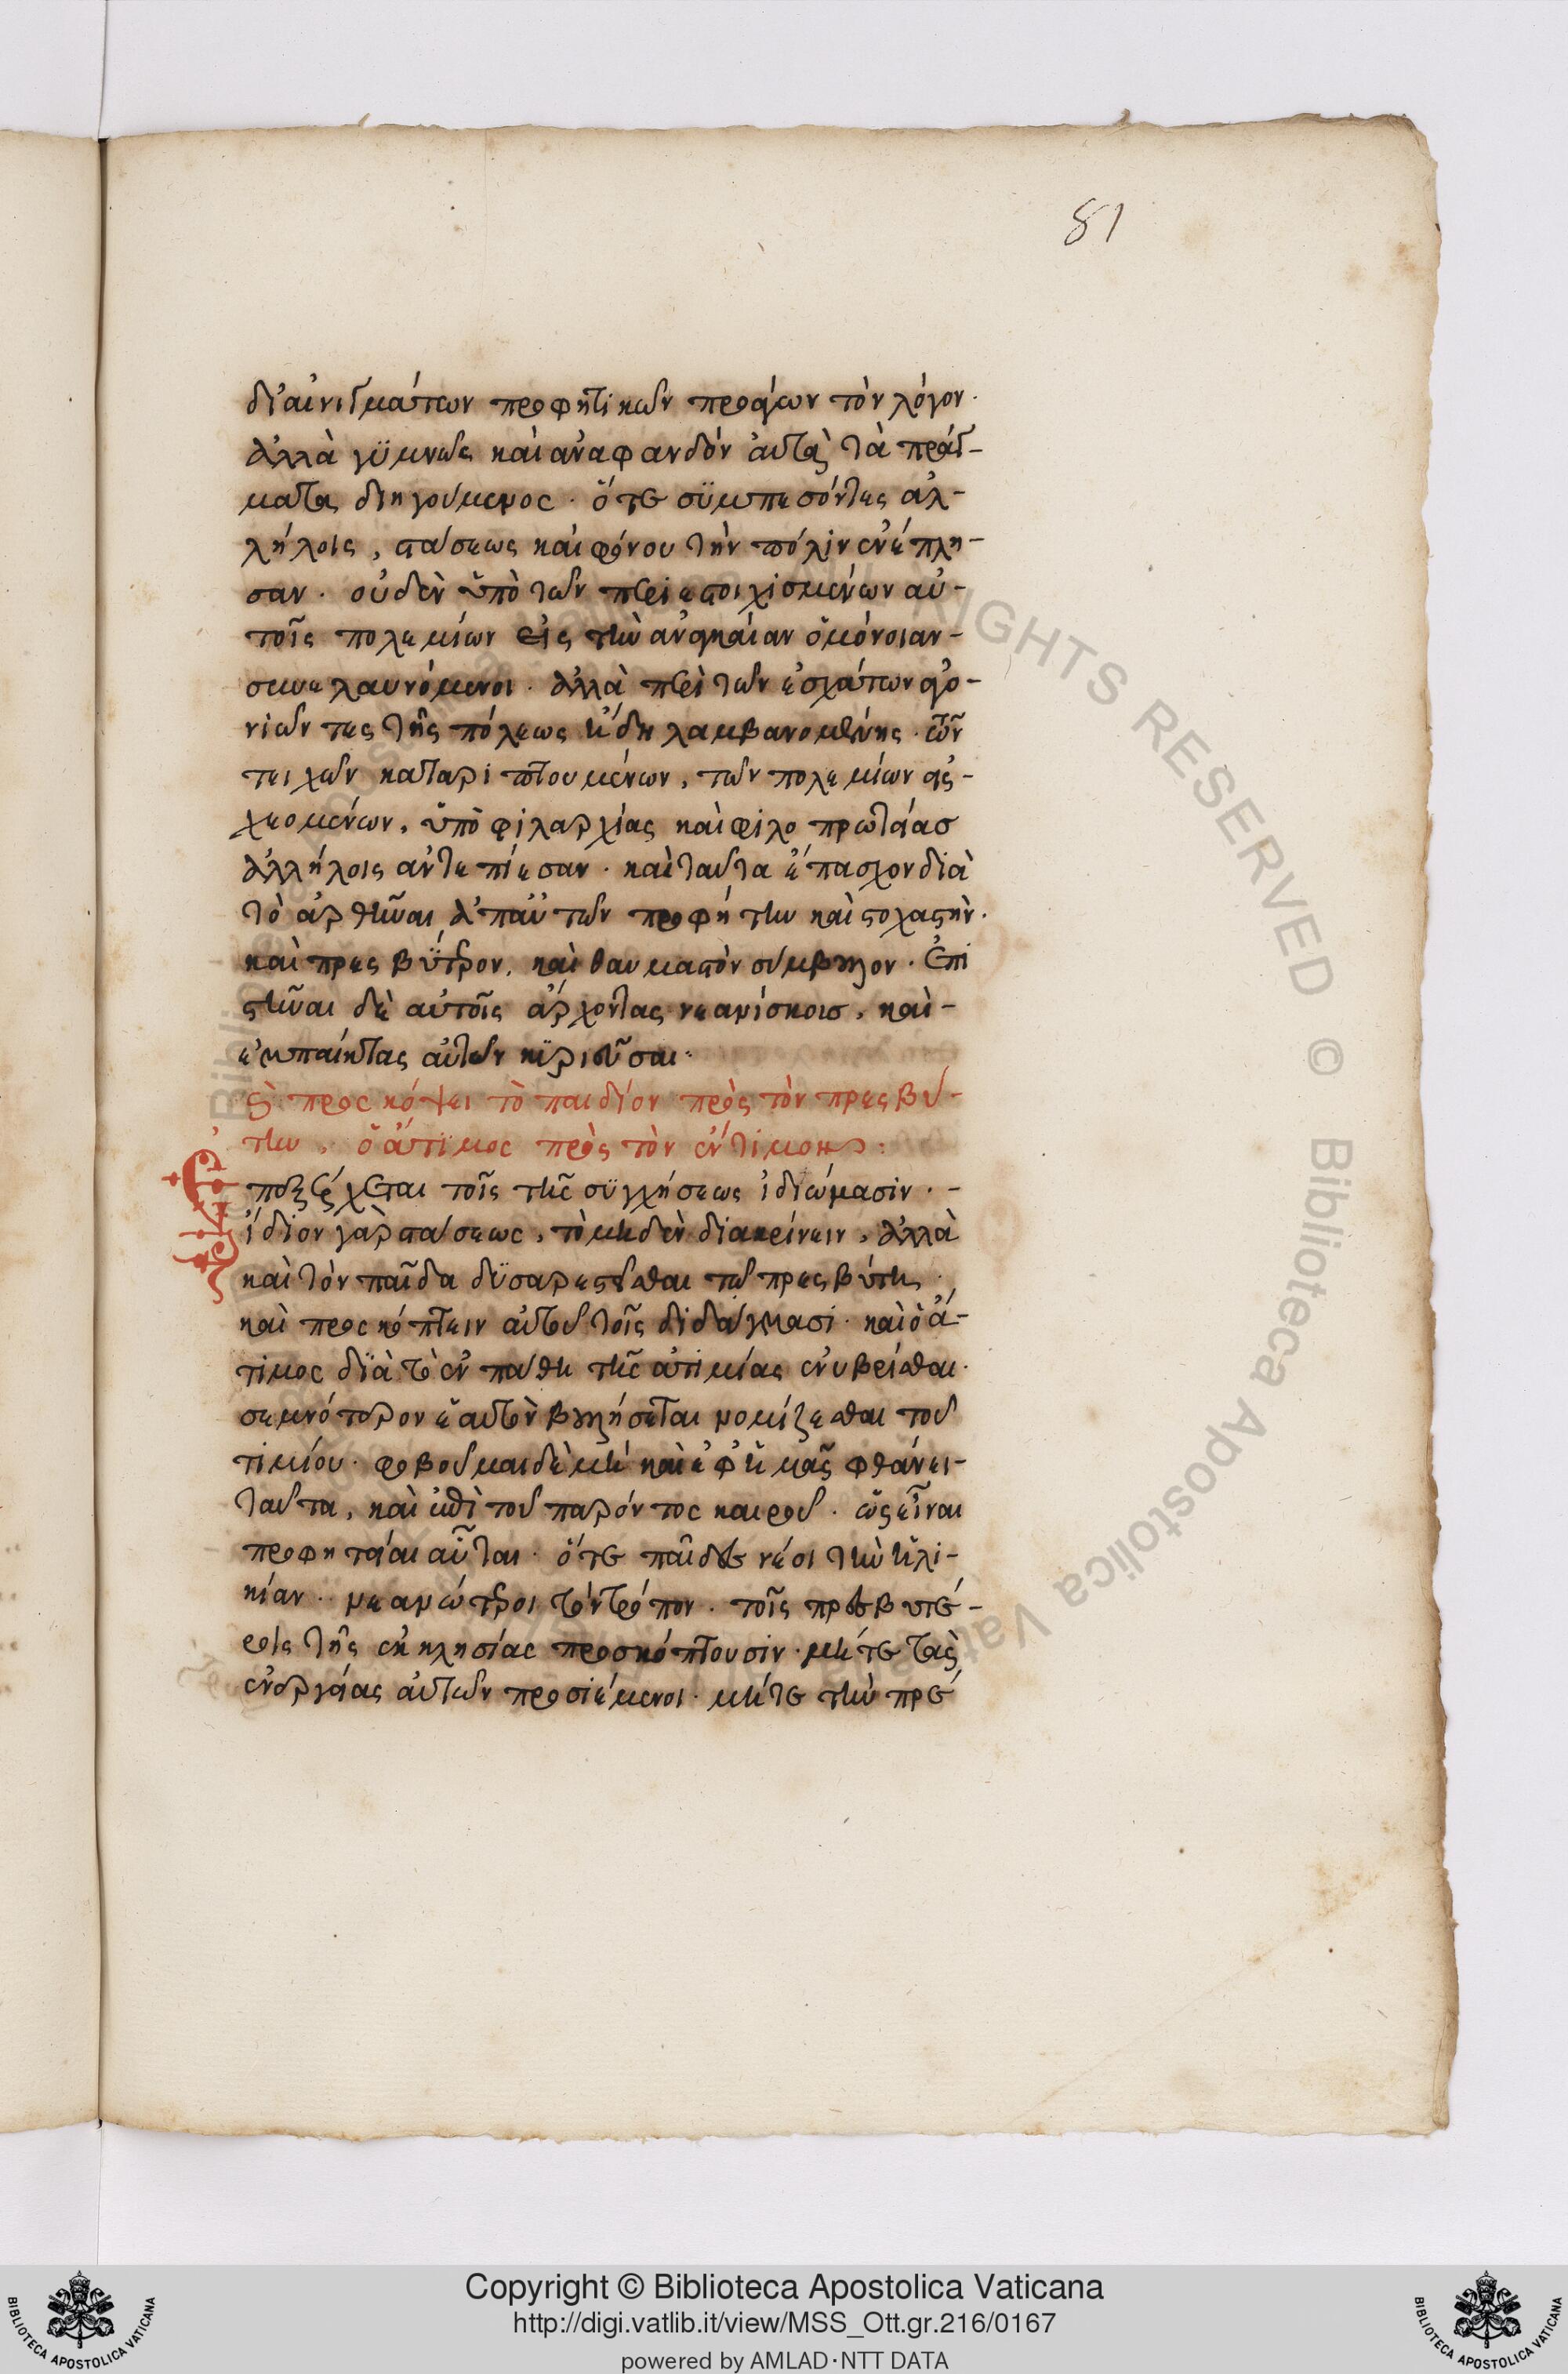 81
δι' αἰνιγμάτων προφητικῶν προάγων τὸν λόγον·
ἀλλὰ γϋμνῶς καὶ ἀναφανδὸν αὐτὰ τὰ πράγ-
ματα διηγούμενος· ὅτε σϋμπεσόντες ἀλ-
λήλοις, στάσεως καὶ φόνου τὴν πόλιν ἐνέπλη-
σαν· οὐδὲν ὑπὸ τῶν περιεστοιχισμένων αὐ-
τοῖς πολεμίων εἰς τὴν ἀναγκαίαν ὁμόνοιαν-
συνελαυνόμενοι· ἀλλὰ περὶ τῶν ἐσχάτων ἀγω-
νιῶντες τῆς πόλεως ἤδη λαμβανομένης· τῶν
τειχῶν καταριπτουμένων, τῶν πολεμίων εἰσ-
χεομένων, ὑπὸ φιλαρχίας καὶ φιλοπρωτείας
ἀλλήλοις ἀντεπίεσαν· καὶ ταῦτα ἔπασχον διὰ
τὸ ἀρθῆναι ἀπ' αὐτῶν προφήτην καὶ στοχαστὴν·
καὶ πρεσβύτερον, καὶ θαυμαστὸν σύμβουλον· Ἐπι
στῆναι δὲ αὐτοῖς ἄρχοντας νεανίσκοις, καὶ-
ἐμπαίκτας αὐτῶν κϋριεῦσαι·
προσκόψει τὸ παιδίον πρὸς τὸν πρεσβύ-
την, ὁ ἄτιμος πρὸς τὸν ἔντιμον:
Ἐπεξέρχεται τοῖς τῆς σϋγχήσεως ἰδιώμασιν·-
ἴδιον γὰρ στάσεως, τὸ μηδὲν διακρίνειν, ἀλλὰ
καὶ τὸν παῖδα δϋσαρεστεῖσθαι τῷ πρεσβύτῃ
καὶ προσκόπτειν αὐτοῦ τοῖς διδάγμασι· καὶ ὁ ἄ-
τιμος διὰ τὸ ἐν πάθει τῆς ἀτιμίας ἐνυβρίσθαι·
σεμνότερον ἑαυτὸν βουλήσεται νομίζεσθαι τοῦ
τιμίου· φοβοῦμαι δὲ μὴ καὶ ἐφ' ἡμᾶς φθάνει-
ταῦτα, καὶ ἐπὶ τοῦ παρόντος καιροῦ· ὡς εἶναι
προφητείαι αὗται· ὅτε παῖδες νέοι τὴν ἡλι-
κίαν· νεανώτεροι τὸν τρόπον· τοῖς πρεσβυτέ-
ροις τῆς ἐκκλησίας προσκόπτουσιν· μήτε τὰς
ἐναργείας αὐτῶν προσιέμενοι· μήτε τὴν πρέ
Copyright © Biblioteca Apostolica Vaticana
http://digi.vatlib.it/view/MSS_Ott.gr.216/0167
powered by AMLAD·NTT DATA